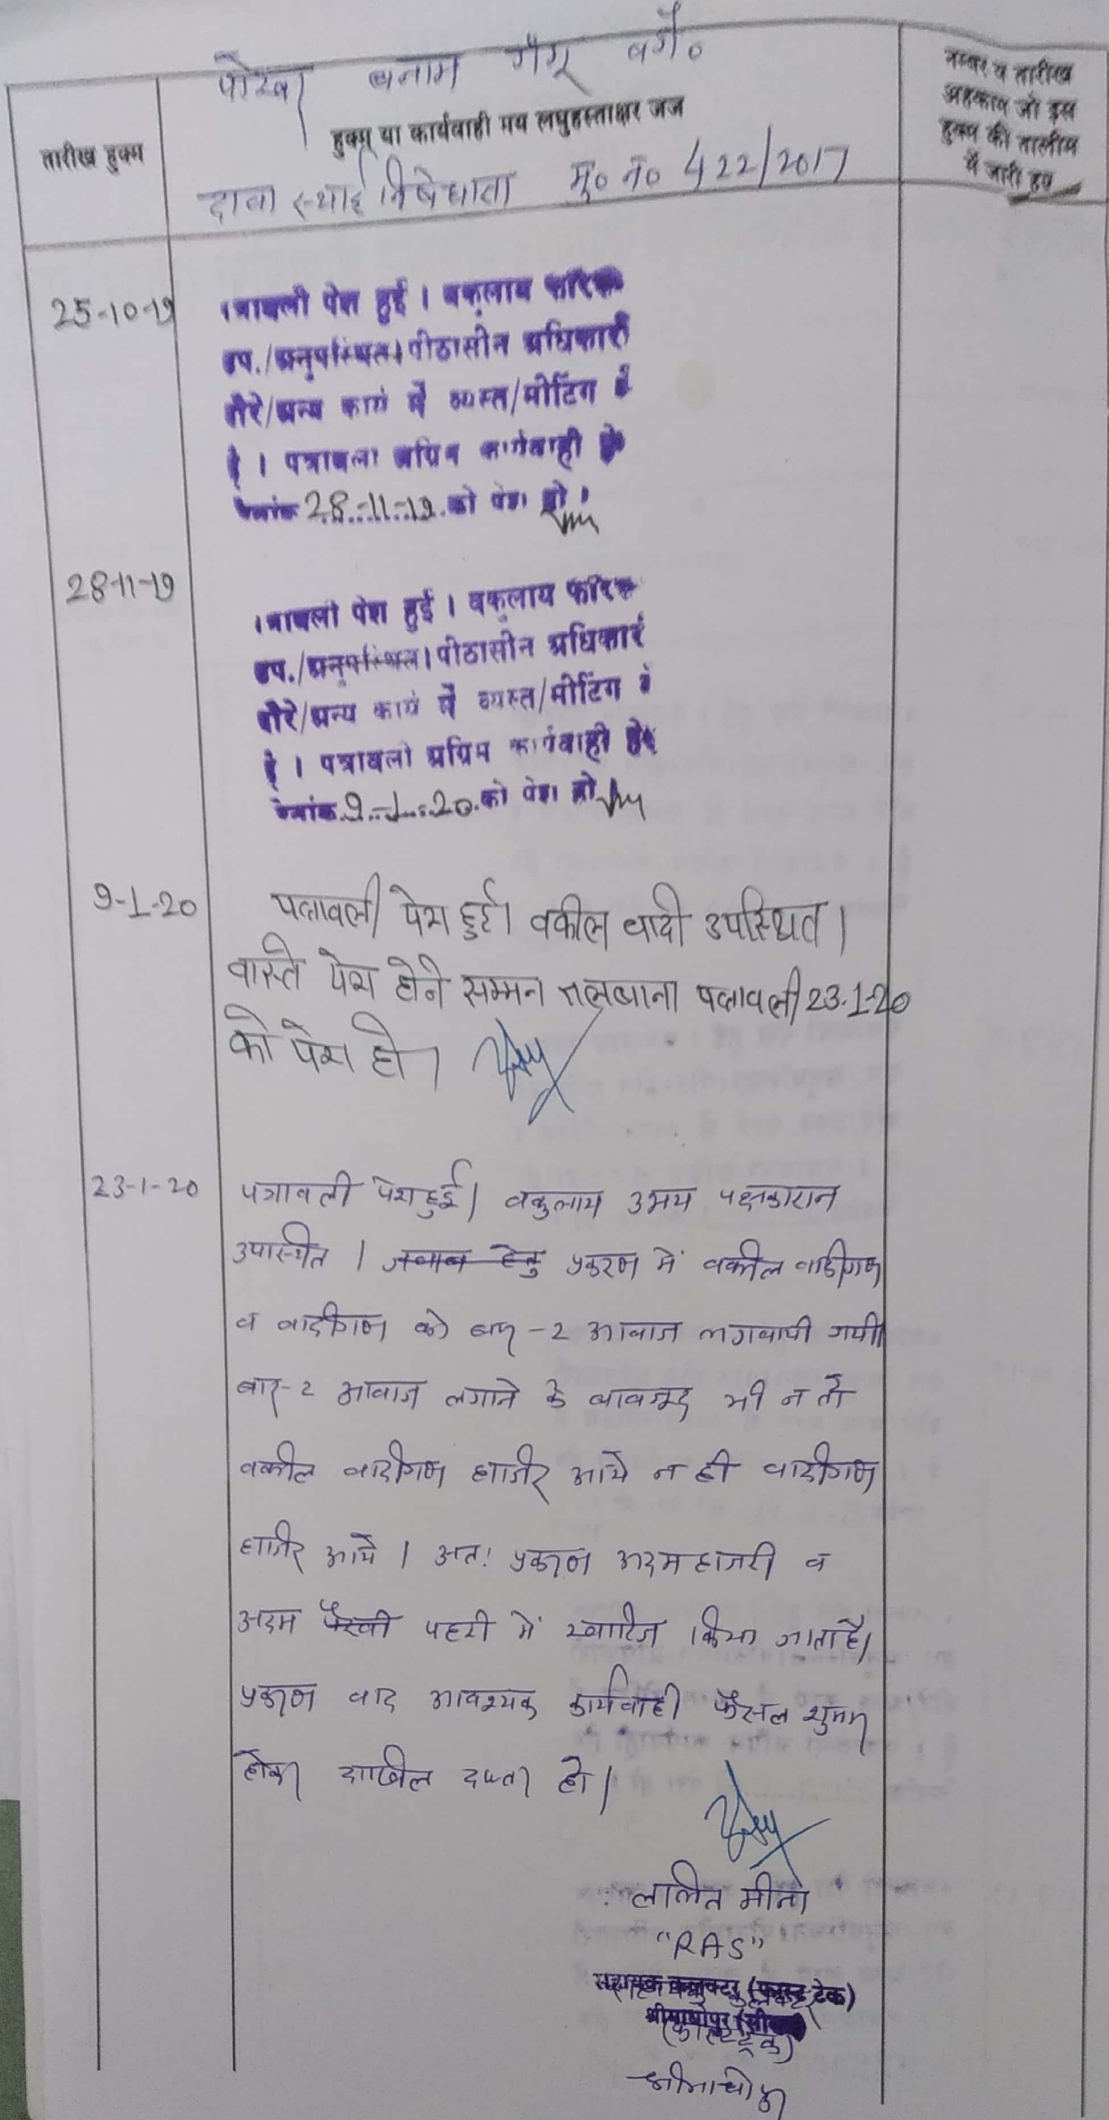 पोखर बनाम गैगू वगै०
तारीख हुक्म
हुक्म या कार्यवाही मय लघुहस्ताक्षर जज
नम्बर व तारीख
अहकाम जो इस
हुक्म की तालीम
में जारी हुए
दावा स्थाई निषेधाता मु० न० 422/2017
25-10-19
पत्रावली पेश हुई । वकुलाय फरिक
उप./अनुपस्थित। पीठासीन अधिकारी
दौरे/अन्य कार्य में व्यस्त/मीटिंग में
है । पत्रावली अग्रिम कार्यवाही हेतु
दिनांक 28-11-19 को पेश हो ।
28-11-19
पत्रावली पेश हुई । वकुलाय फरिक
उप./अनुपस्थित। पीठासीन अधिकारी
दौरे/अन्य कार्य में व्यस्त/मीटिंग में
है । पत्रावली अग्रिम कार्यवाही हेतु
दिनांक 9-1-20 को पेश हो
9-1-20
पत्रावली पेश हुई। वकील वादी उपस्थित ।
वास्ते पेश होने सम्मन तलबाना पत्रावली 23-1-20
को पेश हो ।
23-1-20
पत्रावली पेश हुई। वकुलाय उभय पक्षकारान
उपास्थीत । जवाब हेतु प्रकरण में वकील वादीगण
व वादीगण को बार-2 आवाज लगवायी गयी।
बार-2 आवाज लगाने के बावजूद भी न तो
वकील वादीगण हाजीर आये न ही वादीगण
हाजीर आये । अतः प्रकरण अदम हाजरी व
अदम पैरवी में खारिज किया जाता है।
प्रकरण बाद आवश्यक कार्यवाही फैसल शुमार
होकर दाखील दफ्तर हो।
ललित मीना
"RAS"
सहायक कलक्टर (फास्ट ट्रेक)
श्रीमाधोपुर (सीकर)
(फास्ट ट्रेक)
श्रीमाधोपुर